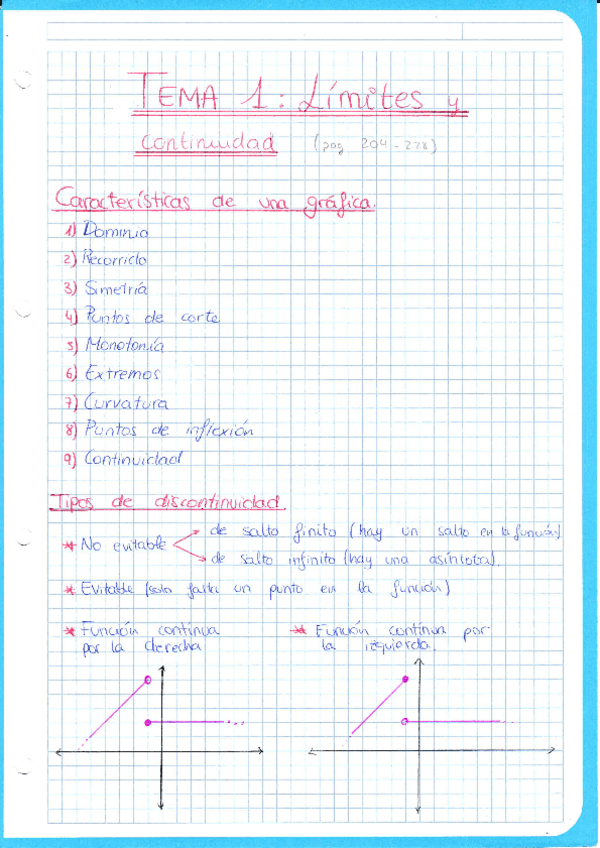 TEMA 1: Límites y
continuidad (pag 204-228)
Características de una gráfica.
1) Dominio
2) Recorrido
3) Simetría
4) Puntos de corte
5) Monotonía
6) Extremos
7) Curvatura
8) Puntos de inflexión
9) Continuidad
Tipos de discontinuidad
* No evitable
de salto finito (hay un salto en la función)
de salto infinito (hay una asíntota).
* Evitable (solo falta un punto en la función)
* Función contínua
por la derecha
* Función contínua por
la izquierda.